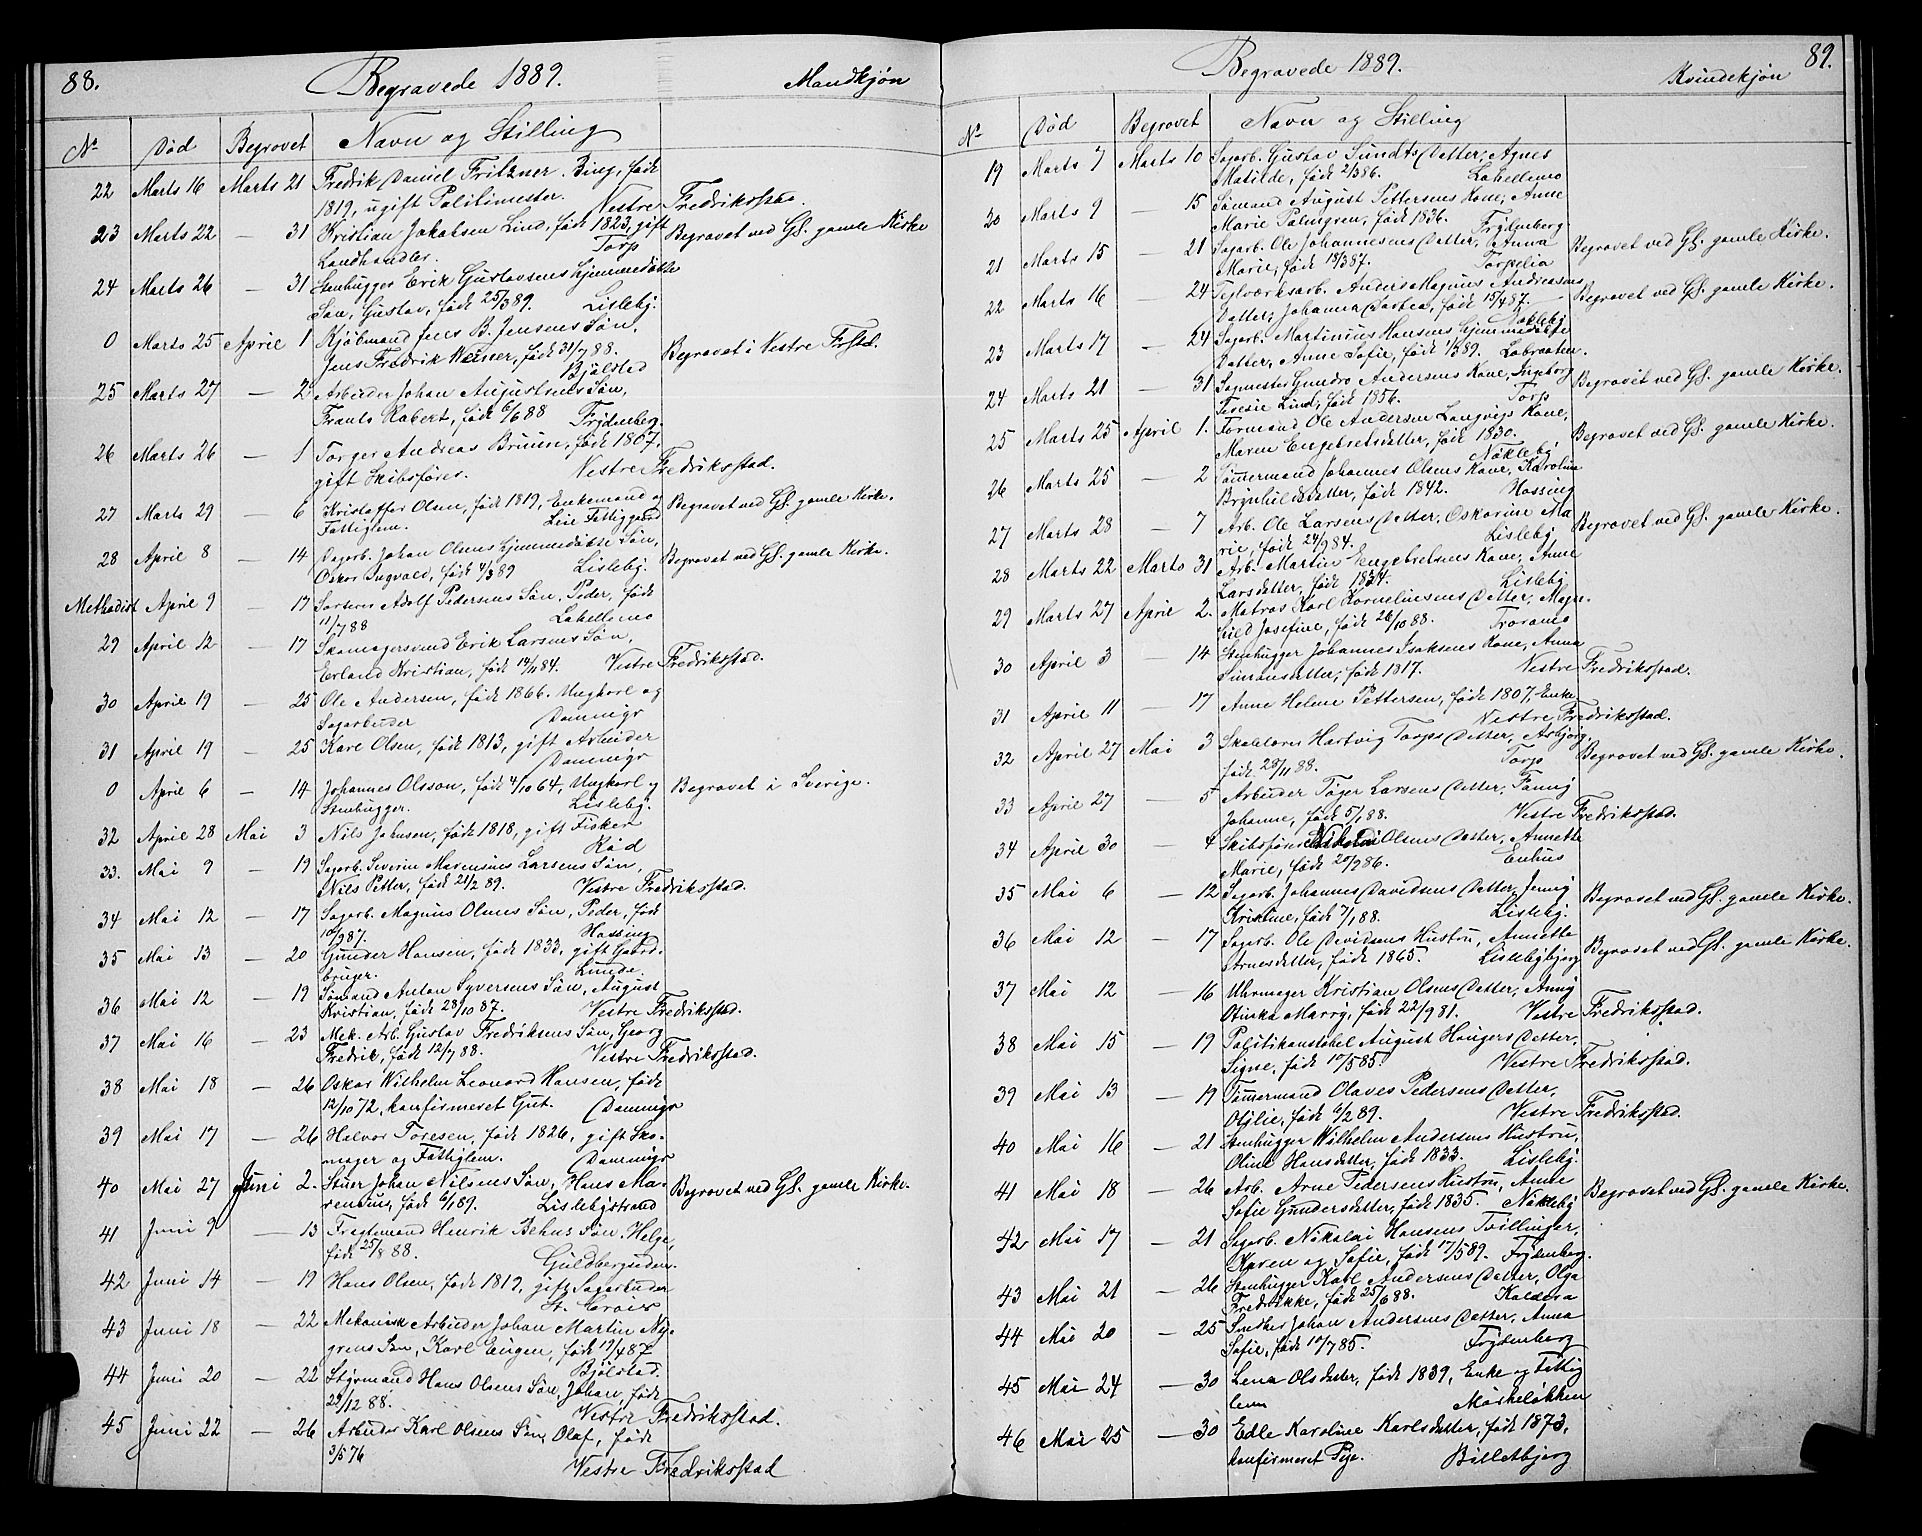 88.
Begravede 1889.
Mandkjøn
No
Død
Begravet
Navn og Stilling
22 Marts 16 Marts 21 Fredrik Daniel Fritzner Bing, født
1819, ugift Politimester. Vestre Fredriksstad.
23 Marts 22 — 31 Kristian Jakobsen Lind, født 1823, gift
Landhandler. Torp Begravet ved Gl. gamle Kirke
24 Marts 26 — 31 Stenhugger Erik Gustavsens hjemmedøbte
Søn, Gustav, født 25/3 89. Lisleby.
0 Marts 25 April 1 Kjøbmand Jens B. Jensens Søn,
Jens Fredrik Werner, født 31/7 88. Begravet i Vestre Frstad.
Bjølstad
25 Marts 27 — 2 Arbeider Johan Augustsens Søn,
Frants Robert, født 6/6 88 Frydenberg.
26 Marts 26 — 1 Torger Andreas Bruun, født 1807,
gift Skibsfører. Vestre Fredriksstad.
27 Marts 29 — 6 Kristoffer Olsen, født 1819, Enkemand og Begravet ved Gl. gamle Kirke.
Fattiglem. Leie Fattiggaard
28 April 8 — 14 Sagarb. Johan Olsens hjemmedøbte Søn, Begravet ved Gl. gamle Kirke.
Oskar Ingvald, født 4/3 89 Lisleby.
Methodist April 9 — 17 Adolf Pedersens Søn, Peder, født
11/7 88 Labellemo
29 April 12 — 17 Skomagersvend Erik Larsens Søn,
Erland Kristian, født 14/11 84. Vestre Fredriksstad.
30 April 19 — 25 Ole Andersen, født 1866. Ungkarl og
Sagarbeider Dammyr
31 April 19 — 25 Karl Olsen, født 1813, gift Arbeider
Dammyr
0 April 6 — 14 Johannes Olsson, født 4/10 64, Ungkarl og Begravet i Sverige.
Stenhugger. Lisleby.
32 April 28 Mai 3 Nils Johnsen, født 1818, gift Fisker
Raad
33. Mai 9 — 19 Sagarb. Severin Marensius Larsens Søn,
Nils Petter, født 21/2 89. Vestre Fredriksstad.
34 Mai 12 — 17 Sagarb. Magnus Olsens Søn, Peder, født
10/9 87. Hassing
35 Mai 13 — 20 Gunder Hansen, født 1833, gift Gaard-
bruger. Lunde.
36 Mai 12 — 19 Sømand Anton Syversens Søn, August
Kristian, født 28/10 87. Vestre Fredriksstad.
37 Mai 16 — 23 Mek. Arb. Gustav Fredriksens Søn, Georg
Fredrik, født 12/7 88. Vestre Fredriksstad.
38 Mai 18 — 26 Oskar Wilhelm Leonard Hansen, født
12/10 72, konfirmeret Gut. Dammyr
39 Mai 17 — 26 Halvor Toresen, født 1826, gift Sko-
mager og Fattiglem. Dammyr
40 Mai 27 Juni 2. Stuer Johan Nilsens Søn, Hans Ma- Begravet ved Gl. gamle Kirke.
rensius, født 6/1 89. Lislebystrand
41 Juni 9 — 13 Fragtemand Henrik Behns Søn, Helge,
født 25/8 88. Guldbergsuden.
42 Juni 14 — 19 Hans Olsen, født 1819, gift Sagarbeider
St. Croix
43 Juni 18 — 22 Mekanisk Arbeider Johan Martin Ny-
grens Søn, Karl Eugen, født 19/4 87
Bjølstad.
44 Juni 20 — 22 Styrmand Hans Olsens Søn, Johan, født
22/12 88. Vestre Fredriksstad.
45 Juni 22 — 26 Arbeider Karl Olsens Søn, Olaf, født
3/5 76
Vestre Fredriksstad
89.
Begravede 1889.
Kvindekjøn
No
Død
Begravet
Navn og Stilling
19 Marts 7 Marts 10 Sagarb. Gustav Sundts Datter, Agnes
Matilde, født 2/3 86. Labellemo
20 Marts 9 — 15 Sømand August Pettersens Kone, Anne
Marie Palmgren, født 1836. Frydenberg
21 Marts 15 — 21 Sagarb. Ole Johannesens Datter, Anna Begravet ved Gl. gamle Kirke.
Marie, født 18/3 87. Torpelia
22 Marts 16 — 24 Teglværksarb. Anders Magnus Andreasens Begravet ved Gl. gamle Kirke.
Datter, Johanna Dorthea, født 15/4 87.
Nøkleby
23 Marts 17 — 24 Sagarb. Martinius Hansens hjemmedøbte
Datter, Anne Sofie, født 1/3 89. Labraaten.
24 Marts 21 — 31 Sagmester Gundro Andersens Kone, Ingeborg Begravet ved Gl. gamle Kirke.
Teresie Lind, født 1856. Torp
25 Marts 25 April 1. Formand Ole Andersen Langvigs Kone, Begravet ved Gl. gamle Kirke.
Maren Engebretsdatter, født 1830.
Nøkleby
26 Marts 25 — 2 Tømmermand Johannes Olsens Kone, Karoline
Brynhildsdatter, født 1842. Hassing
27 Marts 28 — 7 Arb. Ole Larsens Datter, Oskarine Ma Begravet ved Gl. gamle Kirke.
rie, født 24/9 84. Lisleby
28 Marts 22 Marts 31 Arb. Martin Engebretsens Kone, Anne
Larsdatter, født 1834. Lisleby
29 Marts 27 April 2. Matros Karl Korneliusens Datter, Magn-
hild Josefine, født 26/10 88. Traranes
30 April 3 14 Stenhugger Johannes Isaksens Kone, Anna
Simonsdatter, født 1817. Vestre Fredriksstad.
31 April 11 — 17 Anne Helene Pettersen, født 1807, Enke.
Vestre Fredriksstad.
32 April 27 Mai 3 Skolelærer Hartvig Torps Datter, Asbjørg, Begravet ved Gl. gamle Kirke.
født 28/11 88. Torp
33 April 27 — 5 Arbeider Töger Larsens Datter, Fanny
Johanne, født 5/1 88. Vestre Fredriksstad.
34 April 30 — 4 Skibsfører Nikolai Olsens Datter, Annette
Marie, født 20/9 86. Enhus
35 Mai 6 — 12 Sagarb. Johannes Davidsens Datter, Jenny Begravet ved Gl. gamle Kirke.
Kristine, født 7/1 88. Lisleby.
36 Mai 12 — 17 Sagarb. Ole Davidsens Hustru, Annette Begravet ved Gl. gamle Kirke.
Arnesdatter, født 1865. Lislebybjerg
37 Mai 12 — 16 Uhrmager Kristian Olsens Datter, Anny
Otinka Marry, født 22/9 81. Vestre Fredriksstad.
38 Mai 15 — 19 Politikonstabel August Haugers Datter,
Signe, født 10/5 85. Vestre Fredriksstad.
39 Mai 13 — 19 Tømmermand Olaves Pedersens Datter,
Otjlie, født 6/2 89. Vestre Fredriksstad.
40 Mai 16 — 21 Stenhugger Wilhelm Andersens Hustru,
Oline Hansdatter, født 1833. Lisleby.
41 Mai 18 — 26 Arb. Arne Pedersens Hustru, Anne Begravet ved Gl. gamle Kirke.
Sofie Gundersdatter, født 1835. Nøkleby
42 Mai 17 — 21 Sagarb. Nikolai Hansens Tvillinger,
Karen og Sofie, født 17/5 89. Frydenberg.
43 Mai 21 — 26 Stenhugger Karl Andersens Datter, Olga
Fredrikke, født 25/6 88. Kaldera
44 Mai 20 — 25 Snedker Johan Andersens Datter, Anna
Sofie, født 10/7 85. Frydenberg
45 Mai 24 — 30 Lena Olsdatter, født 1839, Enke og Fattig
lem Mørkeløkken
46 Mai 25 — 30 Edle Karoline Karlsdatter, født 1873,
konfirmeret Pige. Billetbjerg